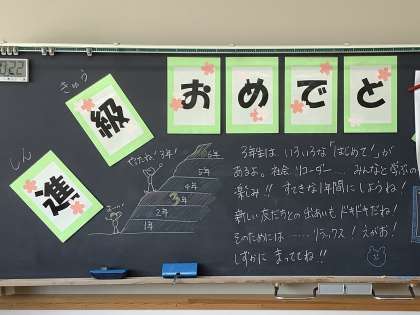 しん
進
きゅう
級
おめでと
やったね!3年!
6年
5年
4年
3年
2年
1年
3年生は、いろいろな「はじめて!」が
あるよ。社会 リコーダー…… みんなと学ぶの
楽しみ!! すてきな1年間にしようね!
新しい友だちとの出あいも ドキドキだね!
そのためには…… リラックス! えがお!
しずかに まっててね!!